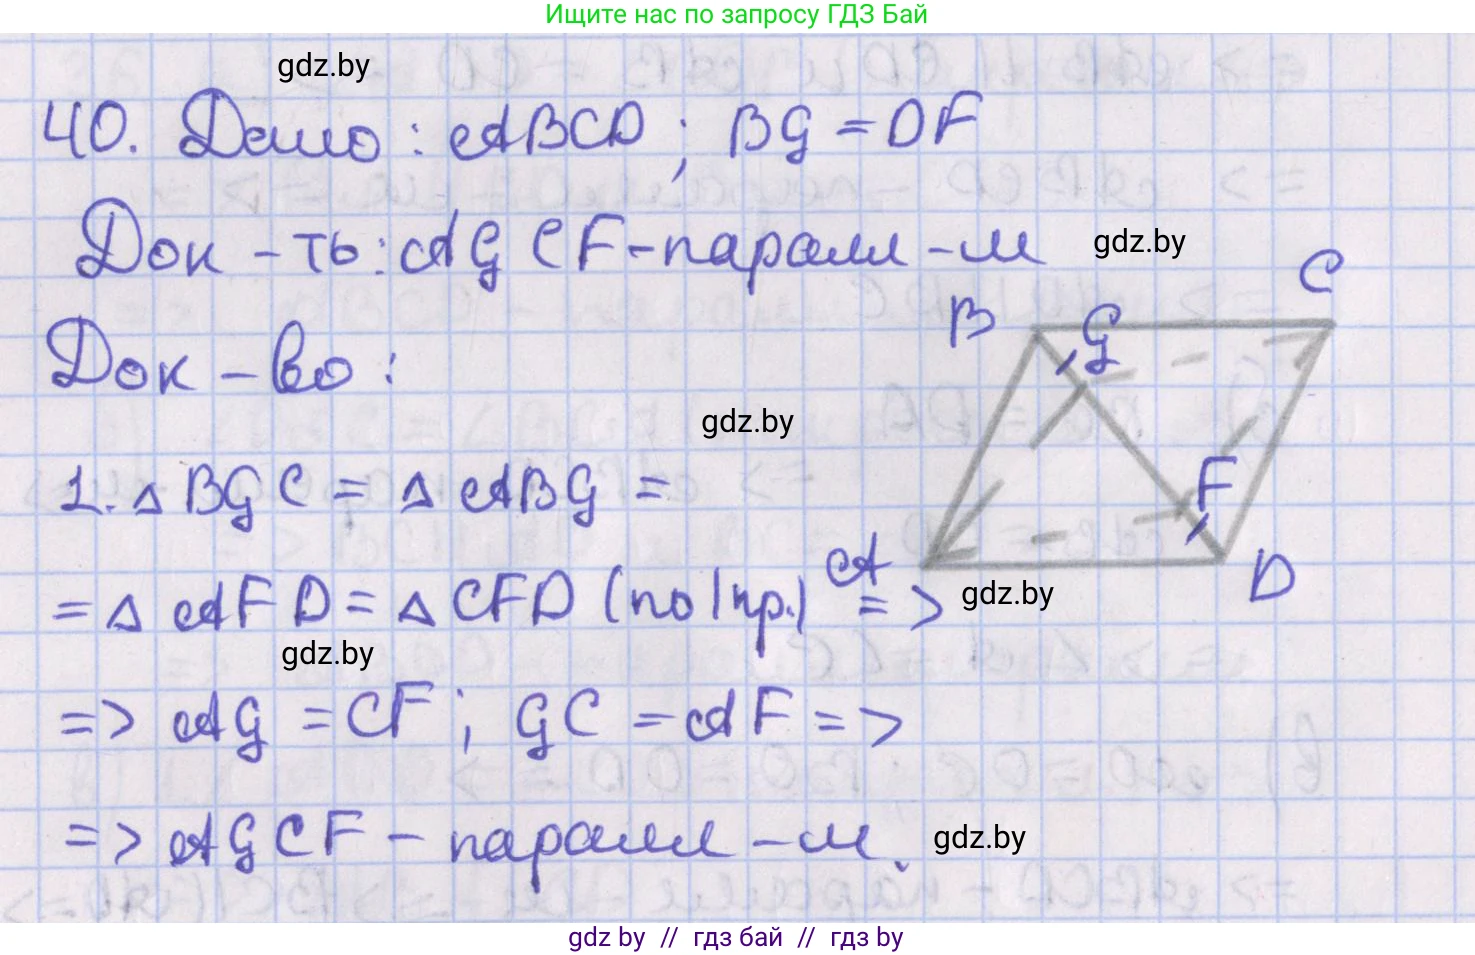 Ищите нас по запросу ГДЗ Бай
gdz.by
40. Дано: ABCD; BG = DF
Док-ть: AGCF - паралл-м
gdz.by
C
B G
Док-во:
gdz.by
1. △ BGC = △ ABG =
F
= △ AFD = △ CFD (по I пр.) =>
A
gdz.by
D
gdz.by
=> AG = CF; GC = AF =>
=> AGCF - паралл-м.
gdz.by
gdz by // гдз бай // гдз by